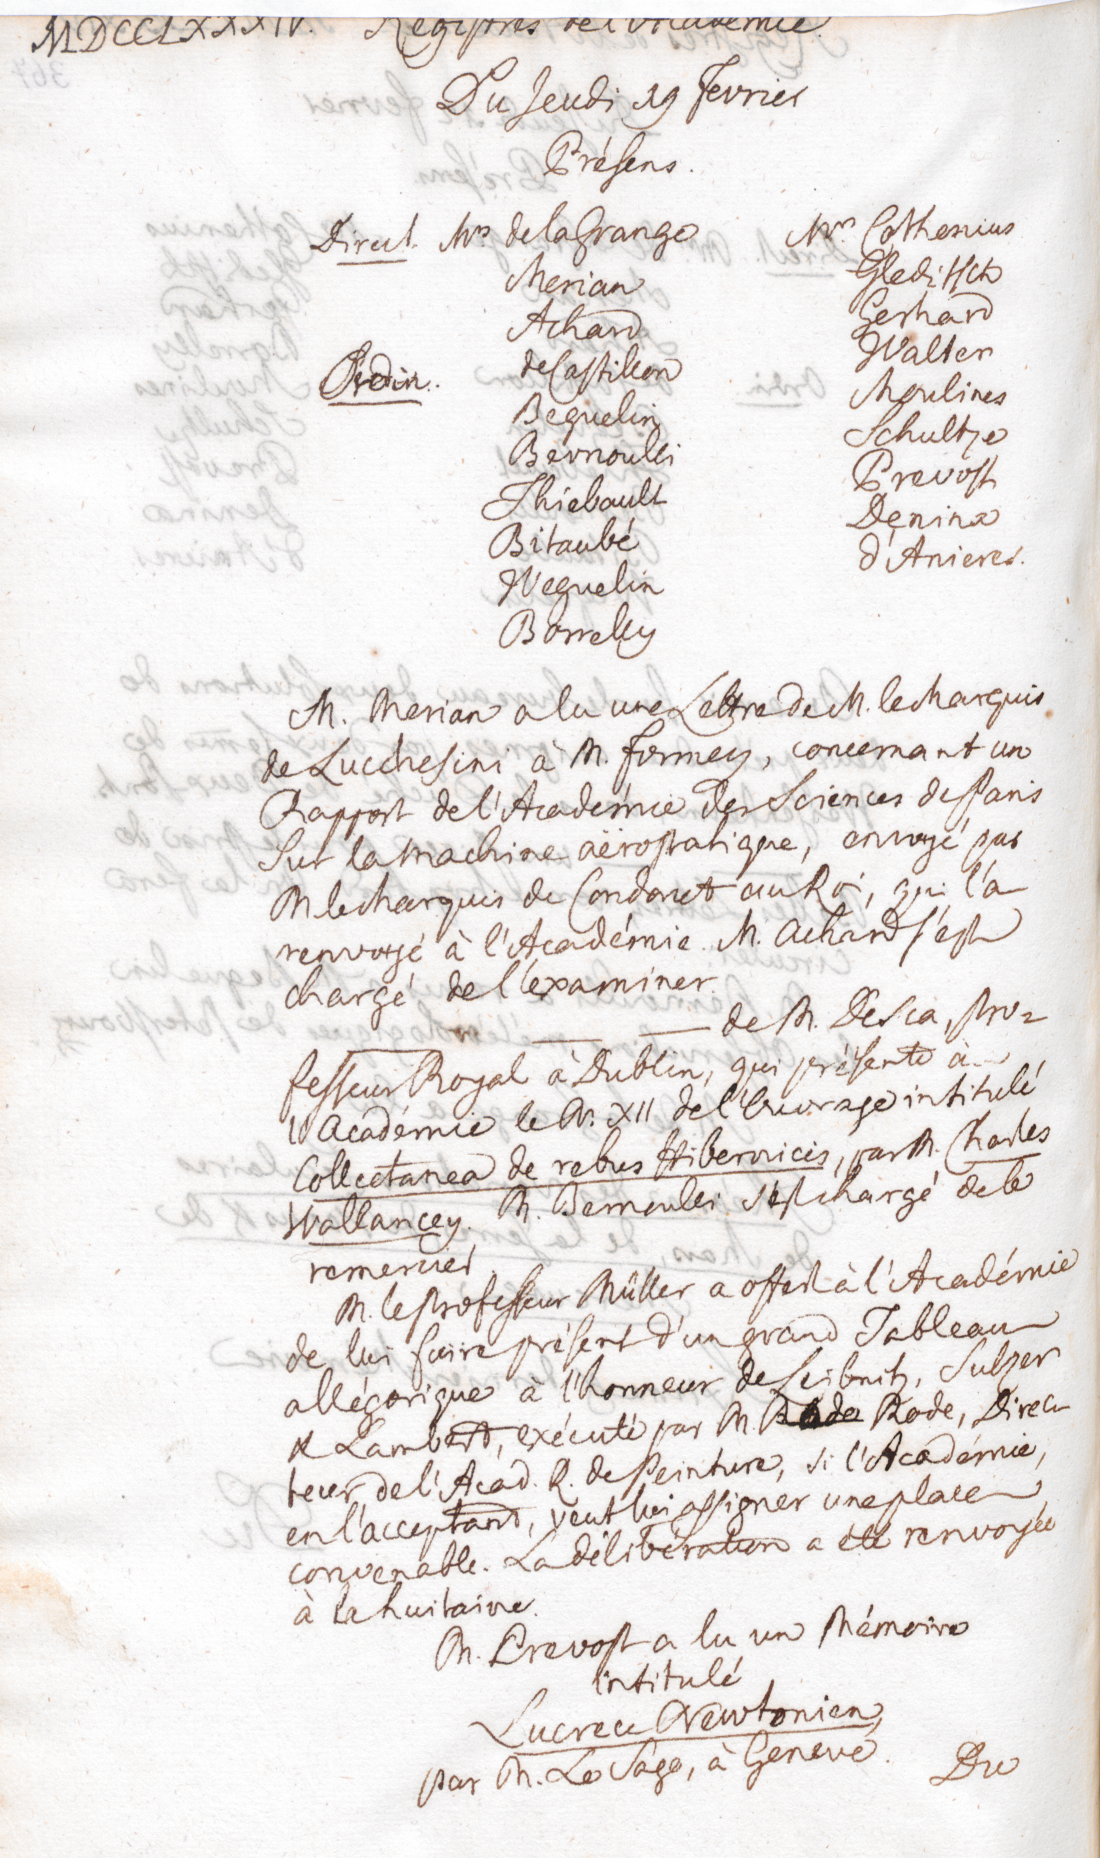 MDCCLXXXIV. Registres de l'Academie.
Du Jeudi 19 Fevrier
Présens.
Direct. Mrs de la Grange
Merian
Achard
Ordin. de Castillon
Beguelin
Bernoulli
Thiebault
Bitaubé
Weguelin
Borrelly
Mrs Cothenius
Gleditsch
Gerhard
Walter
Moulines
Schultze
Prevost
Denina
d'Anieres.
M. Merian a lu une Lettre de M. le Marquis
de Lucchesini à M. Formey, concernant un
Rapport de l'Academie des Sciences de Paris
sur la machine aërostatique, envoyé par
M. le Marquis de Condorcet au Roi, qui l'a
renvoyé à l'Académie. M. Achard s'est
chargé de l'examiner.
— — — de M. Desca, Pro-
fesseur Royal à Dublin, qui présente à
l'Académie le N. XII de l'Ouvrage intitulé
Collectanea de rebus Hibernicis, par M. Charles
Wallancey. M. Bernoulli s'est chargé de le
remercier
M. le Professeur Müller a offert à l'Académie
de lui faire présent d'un grand Tableau
allégorique à l'honneur de Leibnitz, Sulzer
et Lambert, exécuté par M. Rode, Direc-
teur de l'Acad. R. de Peinture, si l'Académie,
en l'acceptant, veut lui assigner une place
convenable. La délibération a été renvoyée
à la huitaine.
M. Prevost a lu un Mémoire
intitulé
Lucrece Newtonien,
par M. Le Sage, à Genève.
Du